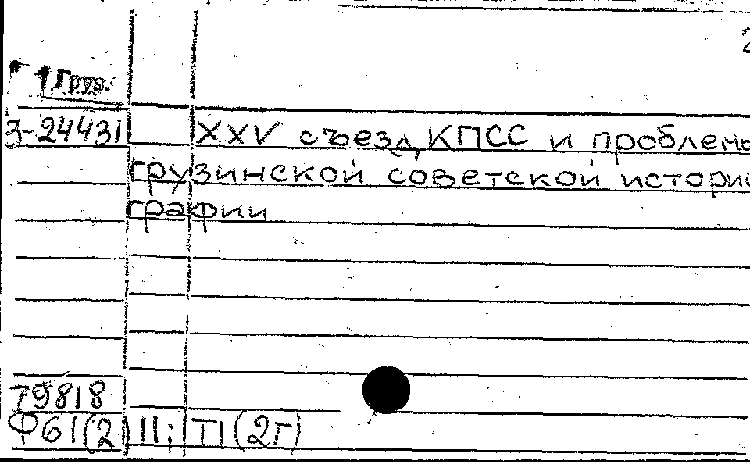 Груз.
З-24431 XXV съезд КПСС и проблема
грузинской советской истори
графии
79818
Ф61(2)11; Т1(2Г)